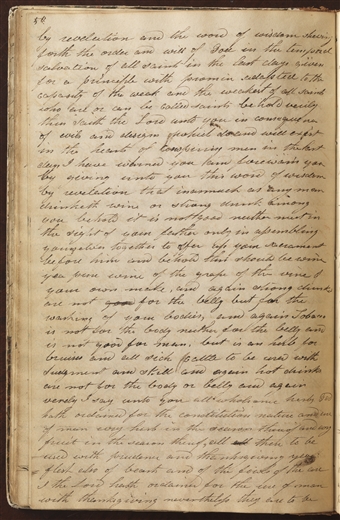 50
by revelation and the word of wisdom shewing
forth the order and will of God in the temporal
salvation of all saints in the last days given
for a principle with promis adapted to the
capasity of the weak and the weakest of all saints
who are or can be called saints behold verily
thus saith the Lord unto you in consequence
of evils and desiens which do and will exist
in the hearts of conspiring men in the last
days I have warned you & forewarn you
by giving unto you this word of wisdom
by revelation that inasmuch as any man
drinketh wine or strong drink among
you behold it is not good neither meet in
the sight of your father only in assembling
yourselves together to offer up your sacrament
before him and behold this should be wine
yea pure wine of the grape of the vine of
your own make, and again strong drinks
are not for the belly but for the
washing of your bodies, and again Tobaco
is not for the body neither for the belly and
is not good for man, but is an herb for
bruises and all sick cattle to be used with
Judgment and skill and again hot drinks
are not for the body or belly and again
verily I say unto you all wholsome herbs God
hath ordained for the constitution nature and use
of man evry herb in the season thereof and evry
fruit in the season thereof, all these to be
used with prudence and thanksgiving yea
flesh also of beasts and of the fowls of the air
I the Lord hath ordained for the use of man
with thanksgiving nevertheless they are to be